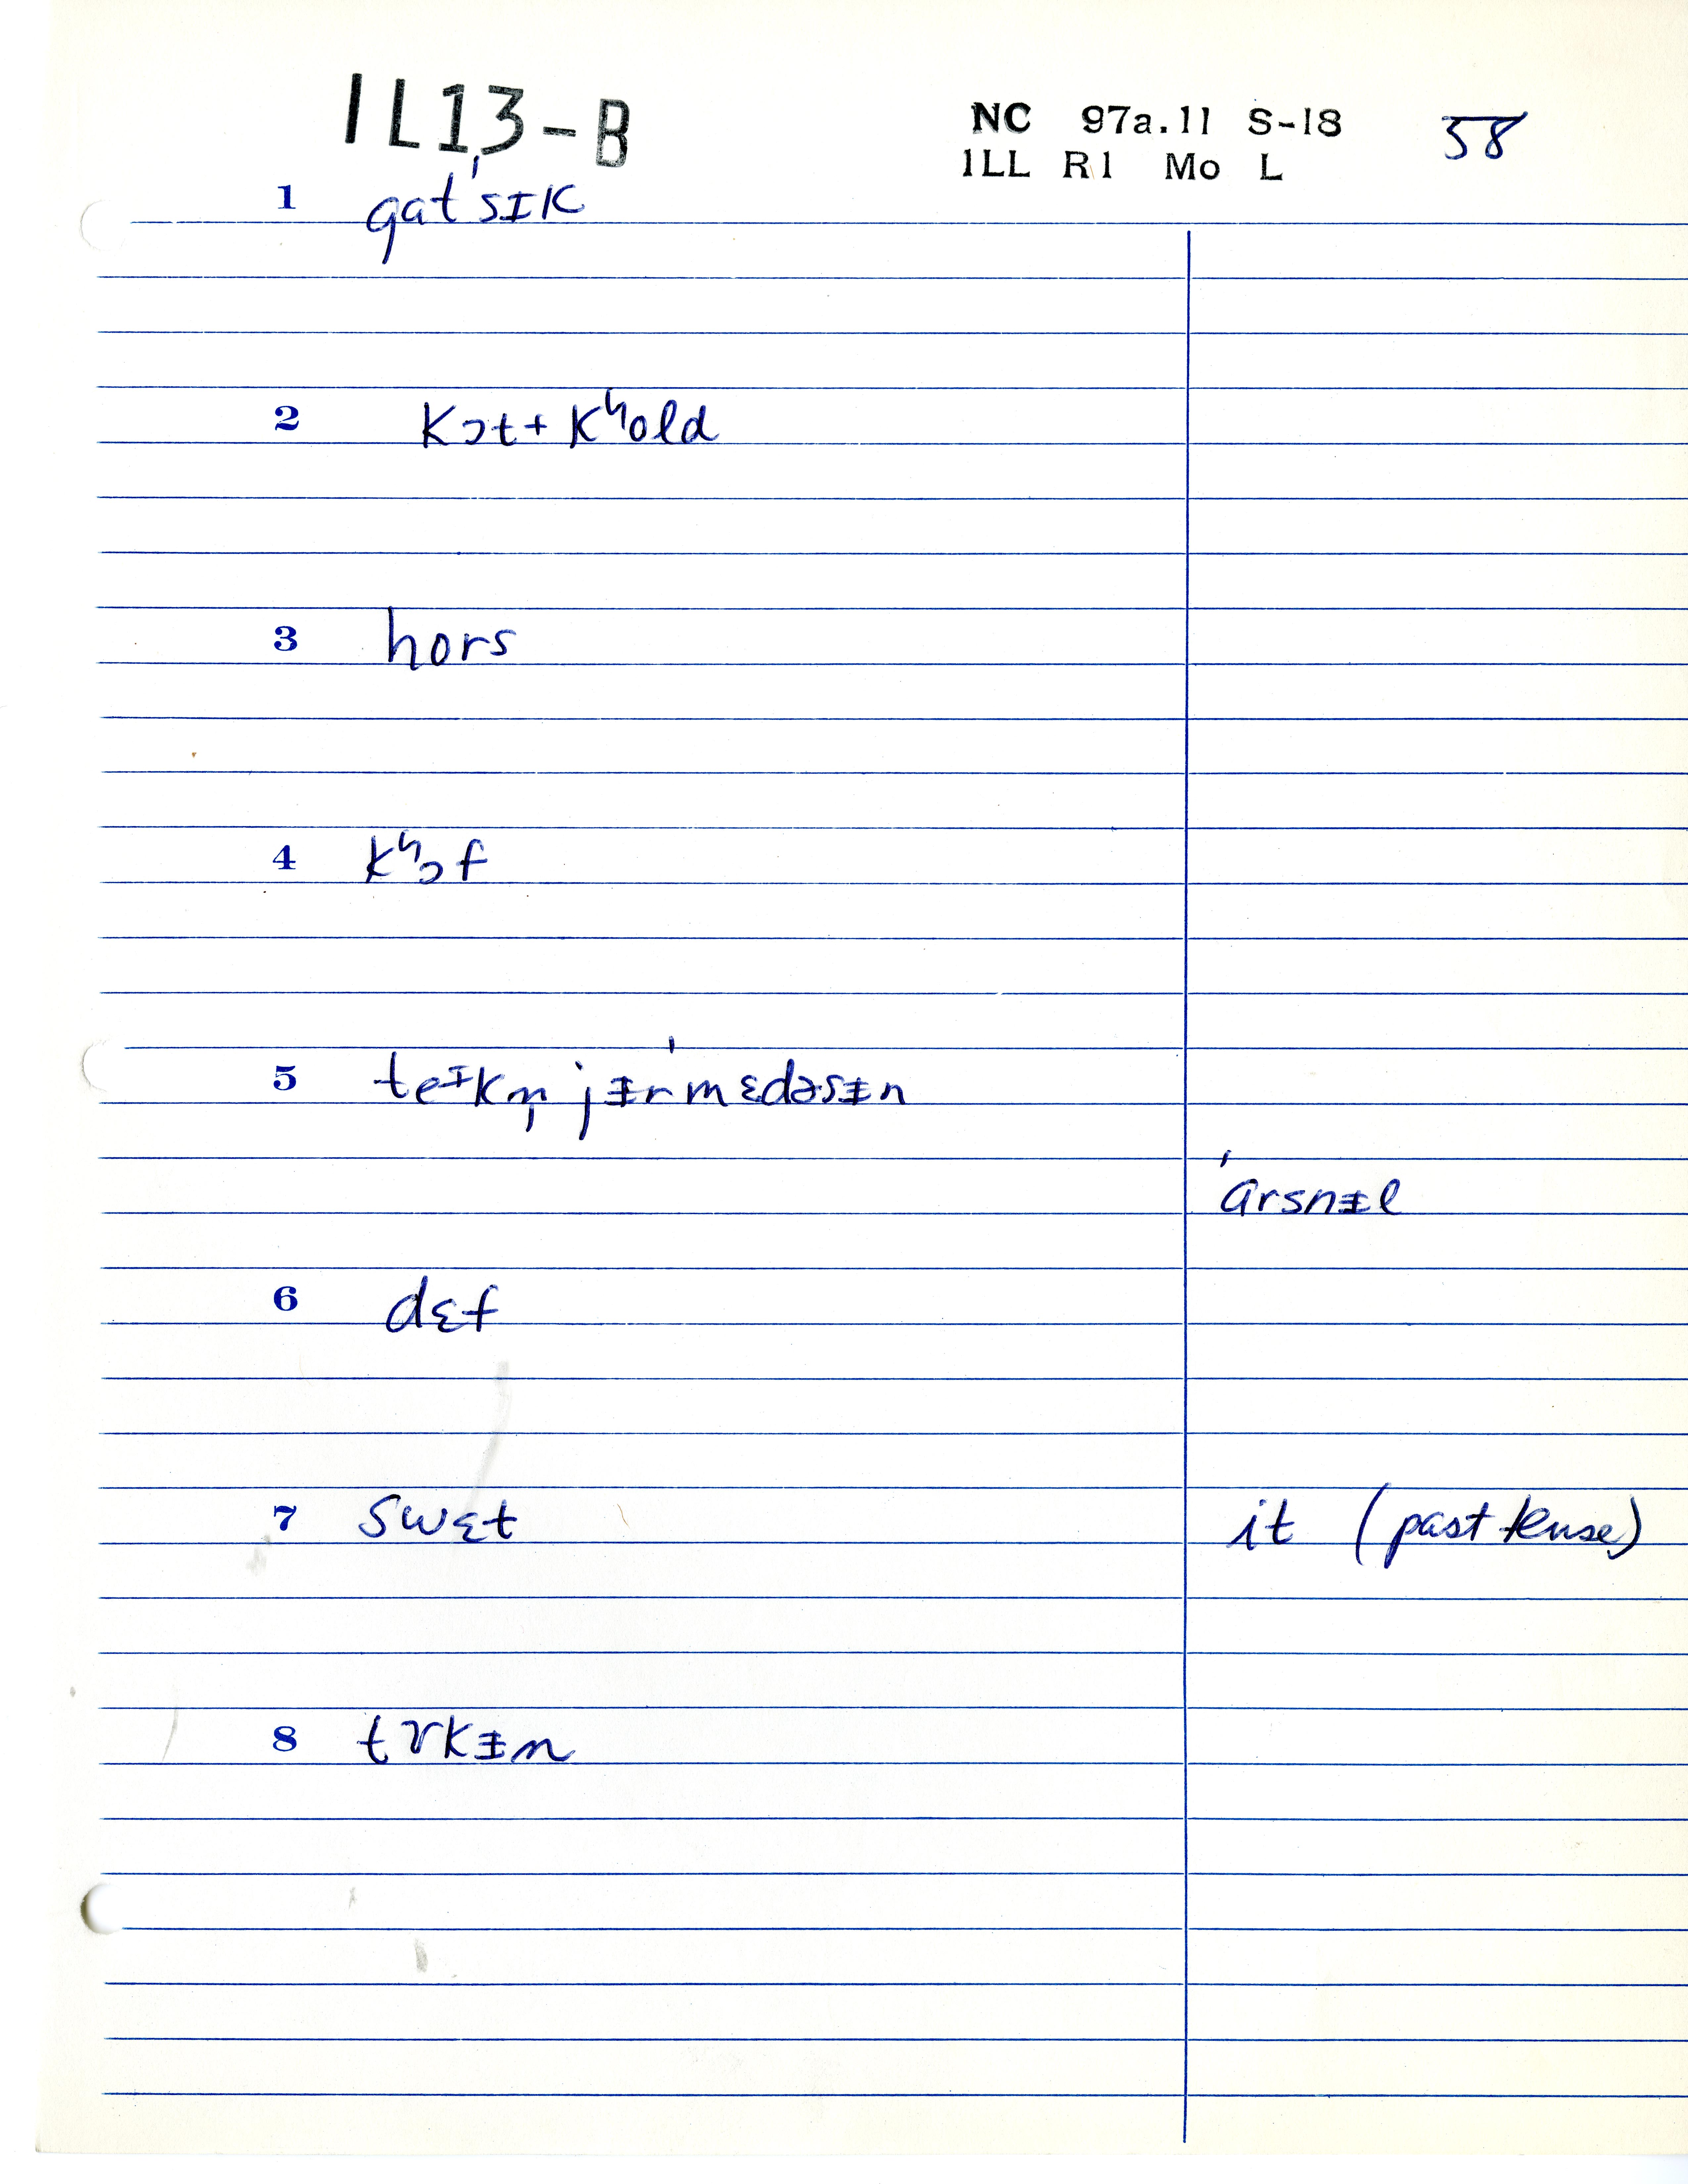 IL13-B
NC 97a.11 S-18 58
ILL R1 Mo L
1 gatˈsɪk
2 kɔt + kʰold
3 hors
4 kʰɔf
5 teᶦkn̩ jɨrˈmɛdəsɨn
ˈarsnɨl
6 dɛf
7 swɛt it (past tense)
8 tɤkɨn